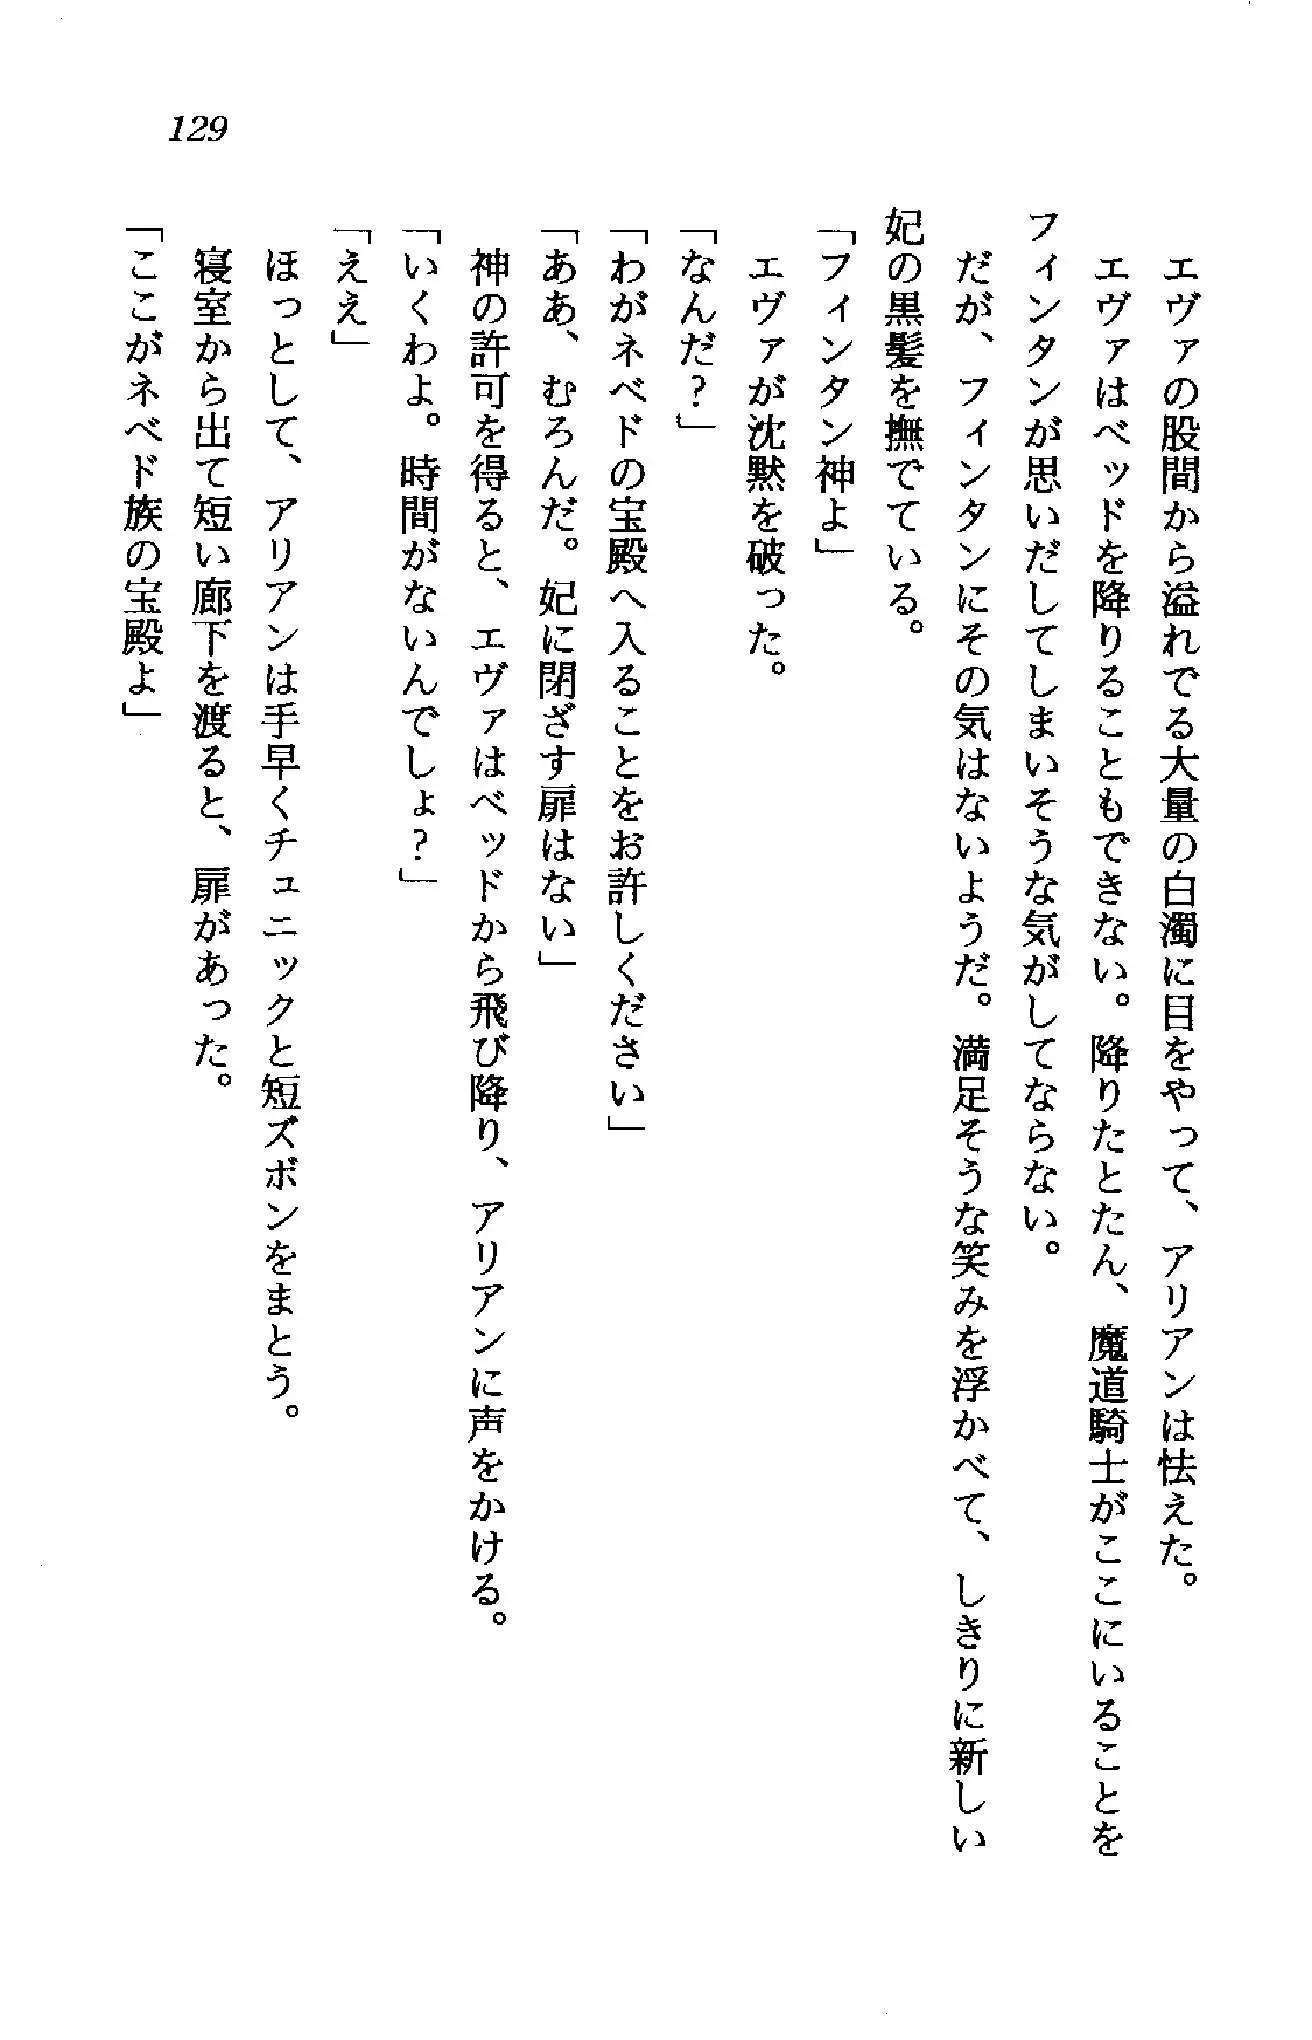 129
エヴァの股間から溢れでる大量の白濁に目をやって、アリアンは怯えた。
エヴァはベッドを降りることもできない。降りたとたん、魔道騎士がここにいることを
フィンタンが思いだしてしまいそうな気がしてならない。
だが、フィンタンにその気はないようだ。満足そうな笑みを浮かべて、しきりに新しい
妃の黒髪を撫でている。
「フィンタン神よ」
エヴァが沈黙を破った。
「なんだ?」
「わがネベドの宝殿へ入ることをお許しください」
「ああ、むろんだ。妃に閉ざす扉はない」
神の許可を得ると、エヴァはベッドから飛び降り、アリアンに声をかける。
「いくわよ。時間がないんでしょ?」
「ええ」
ほっとして、アリアンは手早くチュニックと短ズボンをまとう。
寝室から出て短い廊下を渡ると、扉があった。
「ここがネベド族の宝殿よ」